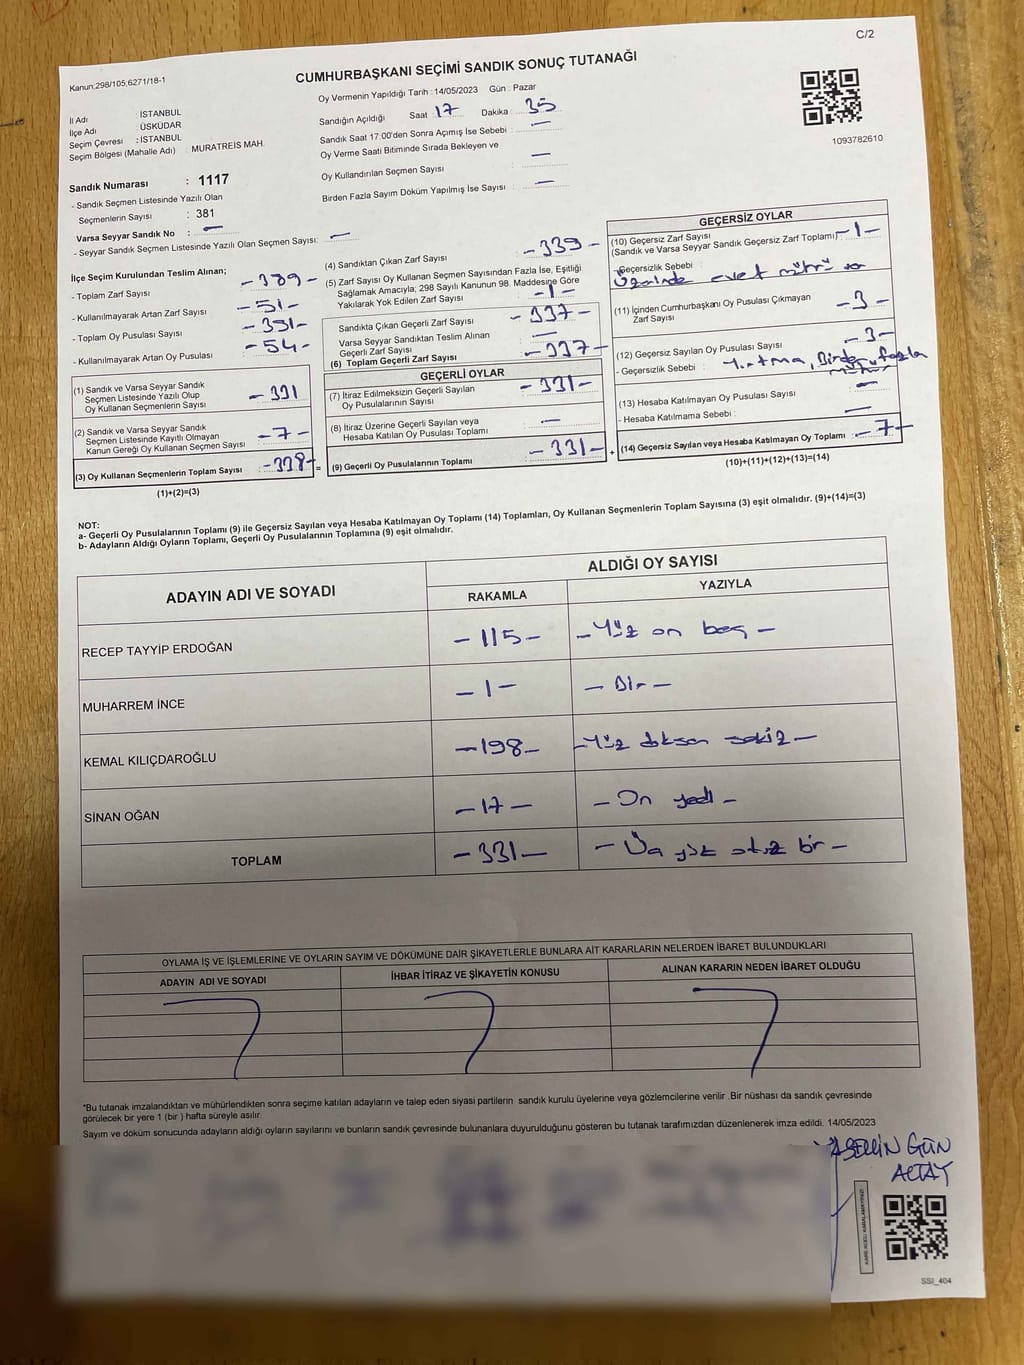 C/2
Kanun:298/105,6271/18-1
CUMHURBAŞKANI SEÇİMİ SANDIK SONUÇ TUTANAĞI
Oy Vermenin Yapıldığı Tarih : 14/05/2023 Gün : Pazar
İl Adı : İSTANBUL
İlçe Adı : ÜSKÜDAR
Seçim Çevresi : İSTANBUL
Seçim Bölgesi (Mahalle Adı) : MURATREİS MAH.
Sandığın Açıldığı Saat : 17 Dakika : 35
Sandık Saat 17:00'den Sonra Açımış İse Sebebi : —
Oy Verme Saati Bitiminde Sırada Bekleyen ve
Oy Kullandırılan Seçmen Sayısı : —
Birden Fazla Sayım Döküm Yapılmış İse Sayısı : —
1093782610
Sandık Numarası : 1117
- Sandık Seçmen Listesinde Yazılı Olan
Seçmenlerin Sayısı : 381
Varsa Seyyar Sandık No : —
- Seyyar Sandık Seçmen Listesinde Yazılı Olan Seçmen Sayısı: —
İlçe Seçim Kurulundan Teslim Alınan;
- Toplam Zarf Sayısı - 389 -
- Kullanılmayarak Artan Zarf Sayısı - 51 -
- Toplam Oy Pusulası Sayısı
- Kullanılmayarak Artan Oy Pusulası - 54 -
(1) Sandık ve Varsa Seyyar Sandık
Seçmen Listesinde Yazılı Olup
Oy Kullanan Seçmenlerin Sayısı - 331
(2) Sandık ve Varsa Seyyar Sandık
Seçmen Listesinde Kayıtlı Olmayan
Kanun Gereği Oy Kullanan Seçmen Sayısı - 7 -
(3) Oy Kullanan Seçmenlerin Toplam Sayısı - 338 - =
(1)+(2)=(3)
(4) Sandıktan Çıkan Zarf Sayısı - 339 -
(5) Zarf Sayısı Oy Kullanan Seçmen Sayısından Fazla İse, Eşitliği
Sağlamak Amacıyla; 298 Sayılı Kanunun 98. Maddesine Göre
Yakılarak Yok Edilen Zarf Sayısı - 1 -
Sandıkta Çıkan Geçerli Zarf Sayısı - 337 -
Varsa Seyyar Sandıktan Teslim Alınan
Geçerli Zarf Sayısı —
(6) Toplam Geçerli Zarf Sayısı - 337 -
GEÇERLİ OYLAR
(7) İtiraz Edilmeksizin Geçerli Sayılan
Oy Pusulalarının Sayısı - 331 -
(8) İtiraz Üzerine Geçerli Sayılan veya
Hesaba Katılan Oy Pusulası Toplamı —
(9) Geçerli Oy Pusulalarının Toplamı - 331 - +
GEÇERSİZ OYLAR
(10) Geçersiz Zarf Sayısı
(Sandık ve Varsa Seyyar Sandık Geçersiz Zarf Toplamı) - 1 -
-Geçersizlik Sebebi :
Üzerinde evet mührü
(11) İçinden Cumhurbaşkanı Oy Pusulası Çıkmayan
Zarf Sayısı - 3 -
(12) Geçersiz Sayılan Oy Pusulası Sayısı - 3 -
- Geçersizlik Sebebi : Yırtma, Birden fazla
mühür
(13) Hesaba Katılmayan Oy Pusulası Sayısı —
- Hesaba Katılmama Sebebi : —
(14) Geçersiz Sayılan veya Hesaba Katılmayan Oy Toplamı : - 7 -
(10)+(11)+(12)+(13)=(14)
NOT:
a- Geçerli Oy Pusulalarının Toplamı (9) ile Geçersiz Sayılan veya Hesaba Katılmayan Oy Toplamı (14) Toplamları, Oy Kullanan Seçmenlerin Toplam Sayısına (3) eşit olmalıdır. (9)+(14)=(3)
b- Adayların Aldığı Oyların Toplamı, Geçerli Oy Pusulalarının Toplamına (9) eşit olmalıdır.
ADAYIN ADI VE SOYADI ALDIĞI OY SAYISI
RAKAMLA YAZIYLA
RECEP TAYYİP ERDOĞAN - 115 - - Yüz on beş -
MUHARREM İNCE - 1 - - Bir -
KEMAL KILIÇDAROĞLU - 198 - - Yüz doksan sekiz -
SİNAN OĞAN - 17 - - On yedi -
TOPLAM - 331 - - Üç yüz otuz bir -
OYLAMA İŞ VE İŞLEMLERİNE VE OYLARIN SAYIM VE DÖKÜMÜNE DAİR ŞİKAYETLERLE BUNLARA AİT KARARLARIN NELERDEN İBARET BULUNDUKLARI
ADAYIN ADI VE SOYADI İHBAR İTİRAZ VE ŞİKAYETİN KONUSU ALINAN KARARIN NEDEN İBARET OLDUĞU
*Bu tutanak imzalandıktan ve mühürlendikten sonra seçime katılan adayların ve talep eden siyasi partilerin sandık kurulu üyelerine veya gözlemcilerine verilir .Bir nüshası da sandık çevresinde
görülecek bir yere 1 (bir ) hafta süreyle asılır.
Sayım ve döküm sonucunda adayların aldığı oyların sayılarını ve bunların sandık çevresinde bulunanlara duyurulduğunu gösteren bu tutanak tarafımızdan düzenlenerek imza edildi. 14/05/2023
YASEMİN GÜN
ALTAY
KARE KODU KARALAMAYINIZ!
SSI_404